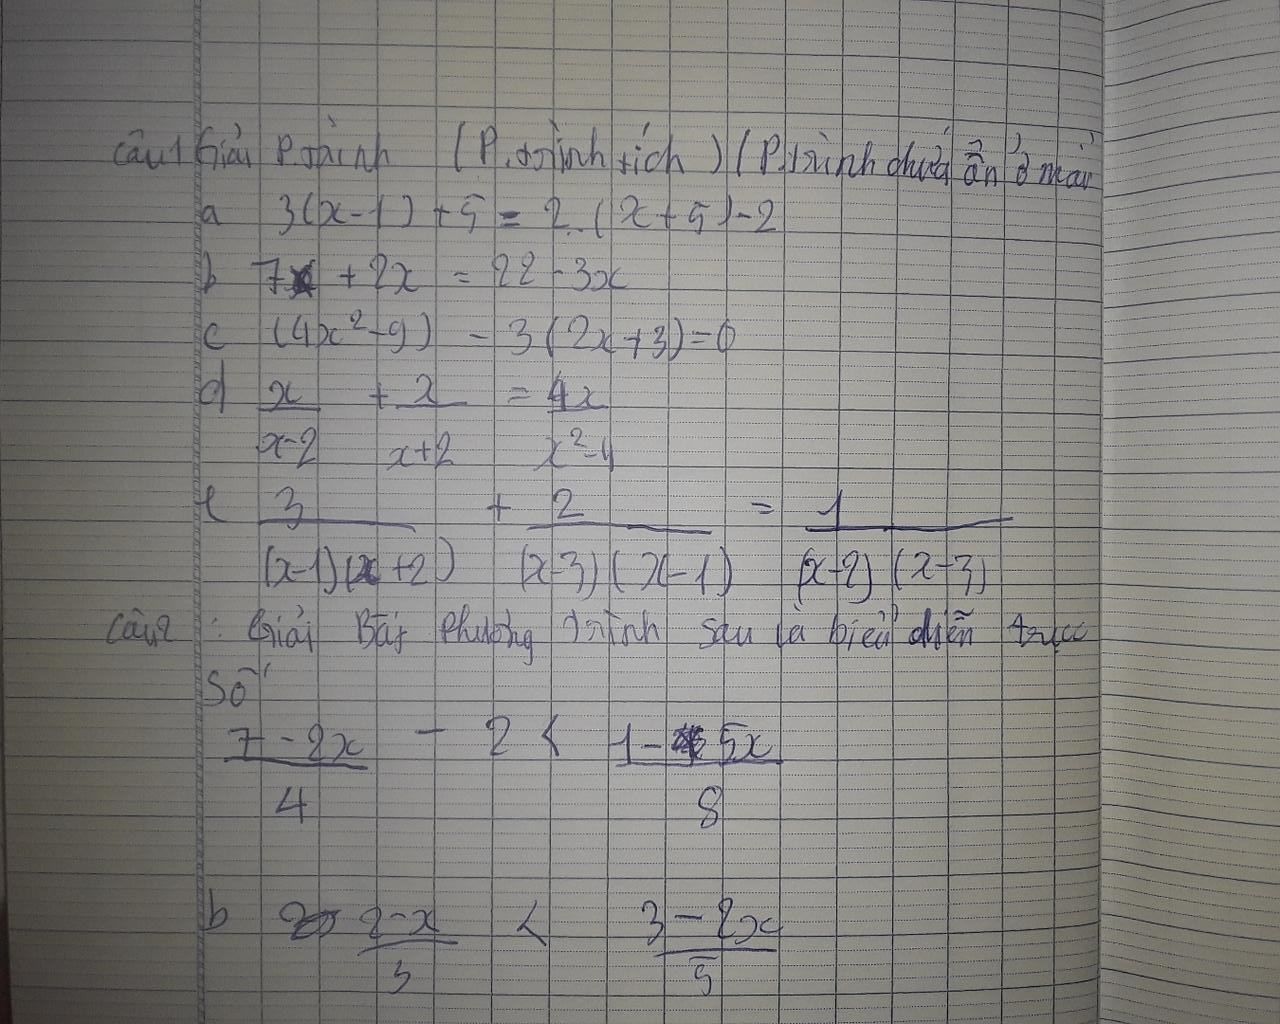 Câu1 Giải P.trình (P.trình tích) (P.trình chứa ẩn ở mẫu
a 3(x-1)+5 = 2.(x+5)-2
b 7 + 2x = 22 - 3x
c (4x²-9) - 3(2x+3)=0
d x/(x-2) + x/(x+2) = 4x/(x²-4)
e 3/((x-1)(x+2)) + 2/((x-3)(x-1)) = 1/((x-2)(x-3))
Câu2 : Giải Bất phương trình sau và biểu diễn trục
số
(7-2x)/4 - 2 < (1-5x)/8
b (2-x)/3 < (3-2x)/5